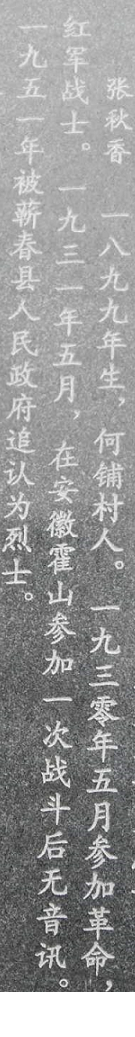 张秋香 一八九九年生，何铺村人。一九三零年五月参加革命，
红军战士。一九三一年五月，在安徽霍山参加一次战斗后无音讯。
一九五一年被蕲春县人民政府追认为烈士。